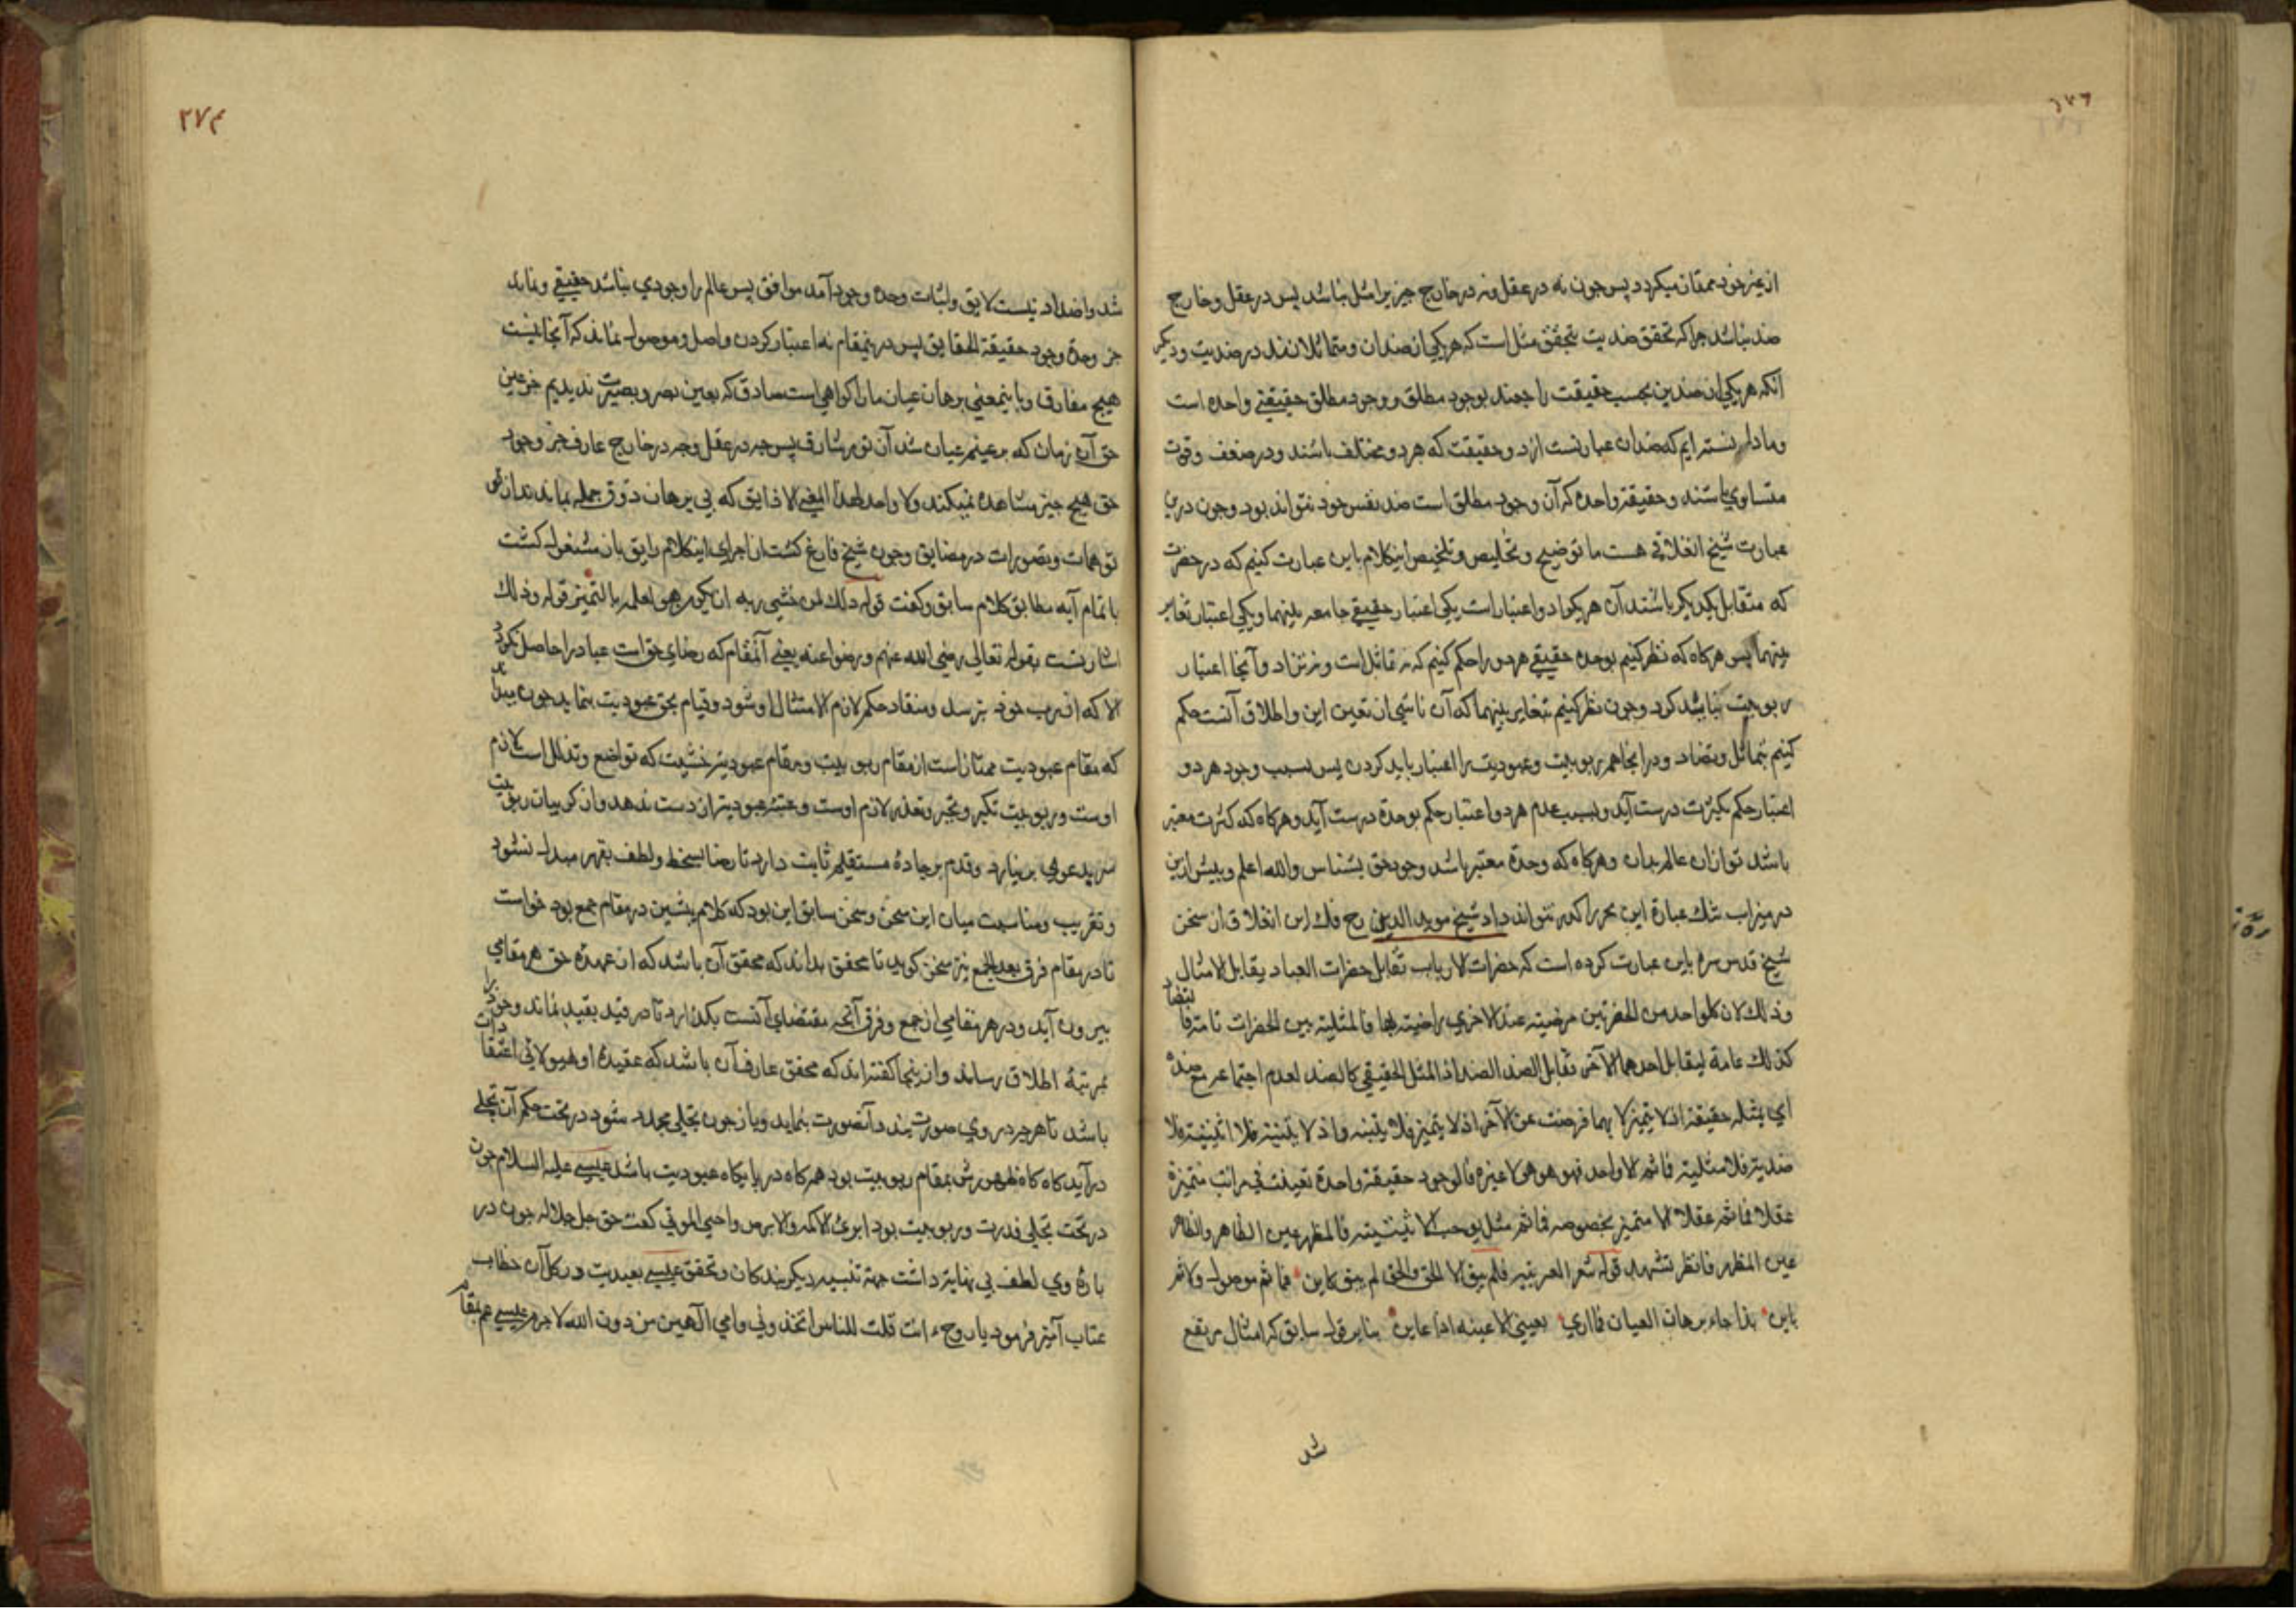 از غیر خود ممتاز میکردد پس چون نه در عقل و نه در خارج چیزیرا مثل نباشد پس در عقل و خارج
ضد نباشد چرا که تحقق ضدیت بتحقق مثل است که هر یکی از ضدان و متماثلانند در ضدیت و دیکر
آنکه هر یکی از ضدین بحسب حقیقت راجعند بوجود مطلق و وجود مطلق حقیقتی واحده است
وما دانسته ایم که ضدان عبارتست از دو حقیقت که هر دو مختلف باشند و در ضعف و قوت
متساوی باشند و حقیقة واحده که آن وجود مطلق است ضد نفس خود نتواند بود و چون درین
عبارت شیخ انغلاقی هست ما توضیح و تخلیص و تلخیص اینکلام باین عبارت کنیم که در حضرت
که متقابل یکدیکر باشند آن هر یکرا دو اعتبار است یکی اعتبار حقیقی جامعه بینهما و یکی اعتبار تغایر
بینهما پس هرکاه که نظر کنیم بوحده حقیقی هردو را حکم کنیم که نه تماثل است و نه تضاد و آنجا اعتبار
ربوبیت نباید کرد و چون نظر کنیم بتغایر بینهما که آن ناشی از تعین این و اطلاق آنست حکم
کنیم بتماثل و تضاد و درانجا هم ربوبیت و عبودیت را اعتبار باید کردن پس بسبب وجود هر دو
اعتبار حکم بکثرت درست آید و بسبب عدم هر دو اعتبار حکم بوحدة درست آید و هرکاه که کثرت معتبر
باشد تو ازان عالم بدان و هرکاه که وحدة معتبر باشد وجود حق بشناس والله اعلم و پیش ازین
در میزاب تنك عبارة این بحر را کذر نتواند داد شیخ موید الدین رح فك این انغلاق از سخن
شیخ قدس سره باین عبارت کرده است که حضرات الارباب تقابل حضرات العباد یقابل الامثال
وذلك لان کلواحد من الحضرتین مرضیته عند الاخری راضیته بها فالمثلیته بین الحضرات تامة فالتضاد
کذلك عامة لیقابل احدهما الآخر تقابل الضد الضد اذ المثل الحقیقی کالضد لعدم اجتماعه مع ضده
ای بمثله حقیقة اذ لا یتمیز الا بهما فرضت عن الآخر اذ لا یتمیز فلا بینیته واذ لا بینیته فلا اثنینیته فلا
ضدیته فلا مثلیته فما ثم الا واحد فهو هو هو لا غیره فالوجود حقیقة واحدة تعینت فی مراتب متمیزة
عقلا فما ثم عقلا الا متمیز بخصوصه فما ثم مثل یوجب الا ثنینیته فالمظهر عین الظاهر والظاهر
عین المظهر فانظر تشهد قوله شعر العربیه فلم یبق الا الحق والحق لم یبق کاین فما ثم موصول ولا ثم
باین بذا جاء برهان العیان فما اری بعینی الا عینه اذا عاین بنابر قول سابق که امثال مرتفع
شد
شد واضداد نیست لایق و اثبات وحده وجود آمد موافق پس عالم را وجودی نباشد حقیقی و نماند
جز وحدة وجود حقیقة الحقایق پس درینمقام نه اعتبار کردن واصل و موصول نماند که آنجا نیست
هیچ مفارق و باینمعنی برهان عیان ما را کواهی است صادق که بعین بصر و بصیرت ندیدیم جز عین
حق آن زمان که بر عینم عیان شد آن نور شارق پس چه در عقل و چه در خارج عارف جز وجود
حق هیچ چیز مشاهده نمیکند ولا واحد لهذا المعنی الا ذایق که بی برهان ذوق جمله بمانند از
توهمات و تصورات در مضایق و چون شیخ فارغ کشت از اجرای اینکلام رایق بان مشغول کشت
با تمام آیه مطابق کلام سابق و کفت قوله ذلك لمن خشی ربه ان یکون هو لعلمه بالتمییز قوله وذلك
اشارتست بقوله تعالی رضی الله عنهم ورضوا عنه یعنی آنمقام که رضای حق است عباد را حاصل نکردد
الا که از رب خود بترسد و منقاد حکم لازم الامتثال او شود و قیام بحق عبودیت بنماید چون
که مقام عبودیت ممتاز است از مقام ربوبیت و مقام عبودیته خشیت که تواضع و تذلل است لازم
اوست و ربوبیت تکبر و تجبر و تعذر لازم اوست و عتبه عبودیته از دست ندهد و از کریبان ربوبیت
سر بدعوی بر نیارد و قدم بر جادۀ مستقیم ثابت دارد تا رضا بسخط و لطف بقهر مبدل نشود
و تقریب و مناسبت میان این سخن و سخن سابق این بود که کلام پیشین در مقام جمع بود خواست
تا در مقام فرق بعد الجمع نیز سخن کوید تا محقق بداند که محقق آن باشد که از عهدۀ حق هر مقامی
بیرون آید و در هر مقامی از جمع و فرق آنچه مقتضای آنست بکذارد تا در قید بقید نماند و خود را
بمرتبۀ اطلاق رساند و از ینجا کفته اند که محقق عارف آن باشد که عقیدۀ او هیولانی اعتقادات
باشد تا هر چه در وی صورت بندد آنصورت بنماید و باز چون بتجلی مجدد شود در تحت حکم آن تجلی
درآید کاه کاه ظهورش بمقام ربوبیت بود همرکاه در پایکاه عبودیت باشد عیسی علیه السلام چون
در تحت تجلی قدرت و ربوبیت بود ابرئ الاکمه والابرص واحی الموتی کفت حق جل جلاله چون در
بارۀ وی لطف بی نهایت داشت جهة تنبیه دیکر بندکان و تحقق عیسی بعبدیت در کل آن خطاب
عتاب آمیز فرمود یا روح ء انت قلت للناس اتخذونی وامی الآهین من دون الله لاجرم عیسی عم بمقام